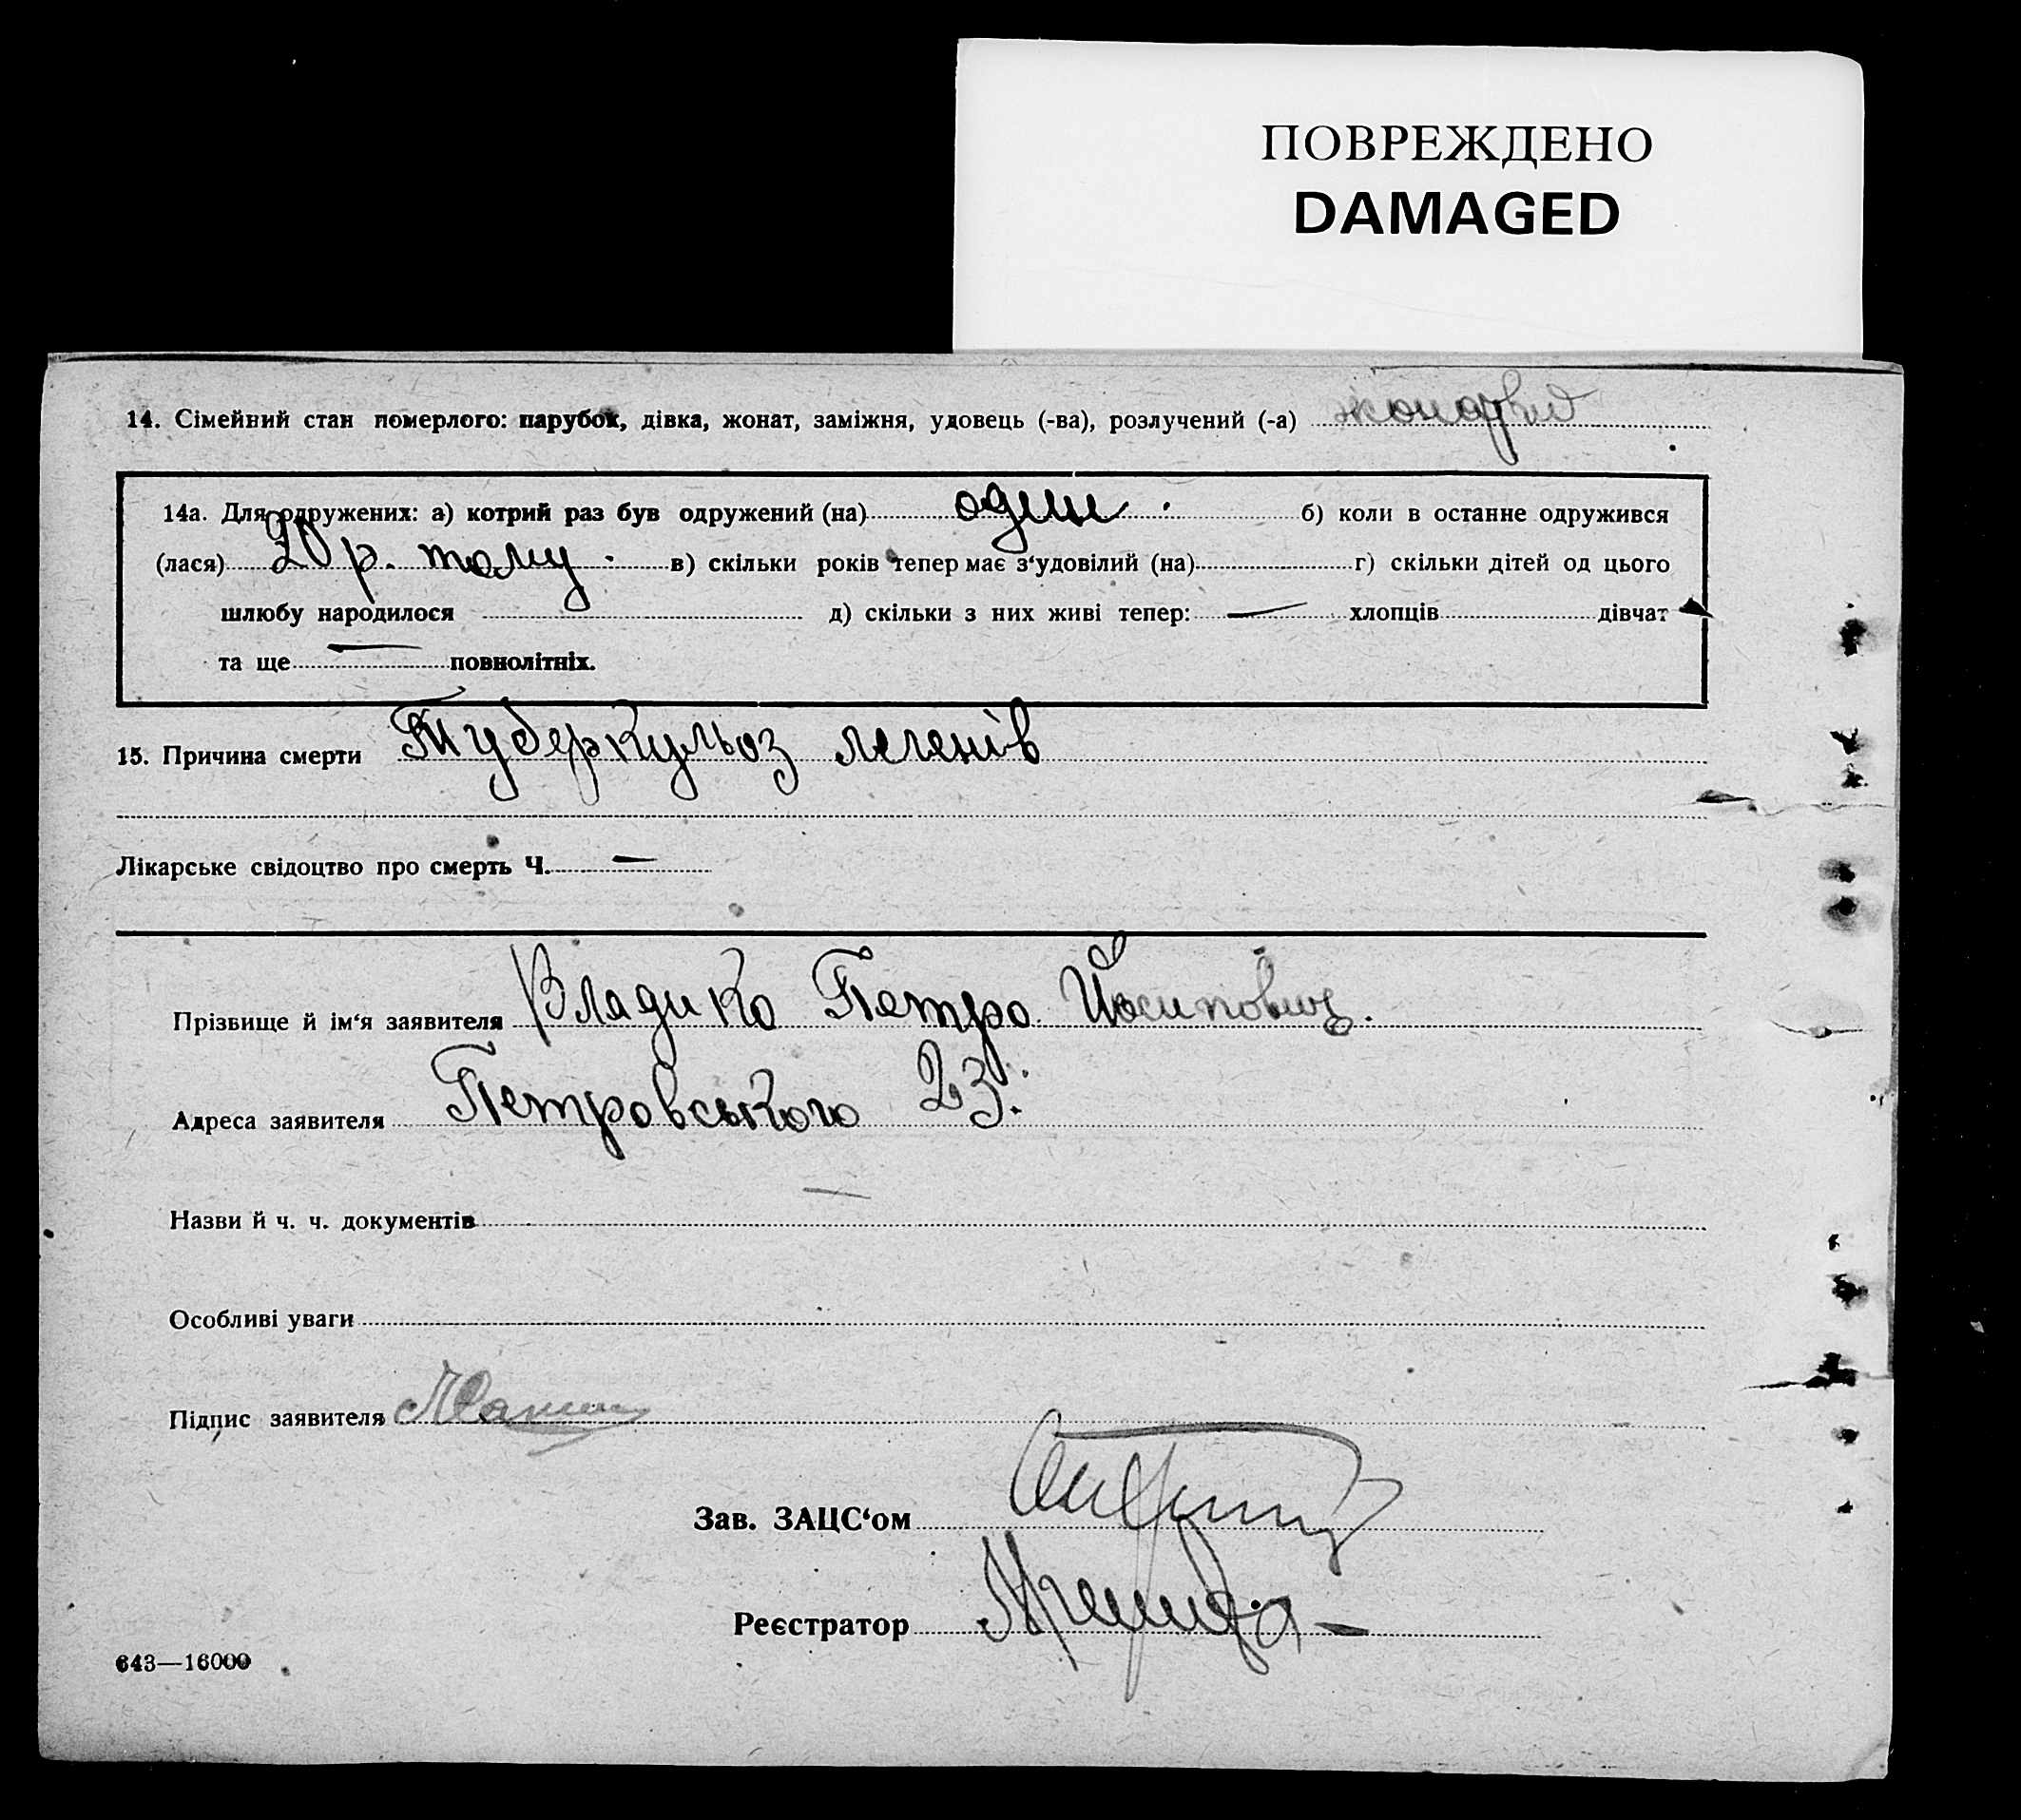 ПОВРЕЖДЕНО
DAMAGED
14. Сімейний стан померлого: парубок, дівка, жонат, заміжня, удовець (-ва), розлучений (-а)
14а. Для одружених: а) котрий раз був одружений (на) один б) коли в останне одружився
(лася) 20 р. тому в) скільки років тепер має з‘удовілий (на) г) скільки дітей од цього
шлюбу народилося д) скільки з них живі тепер: — хлопців дівчат
та ще — повнолітніх.
15. Причина смерти Туберкульоз легенів
Лікарське свідоцтво про смерть Ч. —
Прізвище й ім‘я заявителя Владико Петро Йосипович.
Адреса заявителя Петровського 23.
Назви й ч. ч. документів —
Особливі уваги
Підпис заявителя
Зав. ЗАЦС‘ом
Реєстратор
643—16000